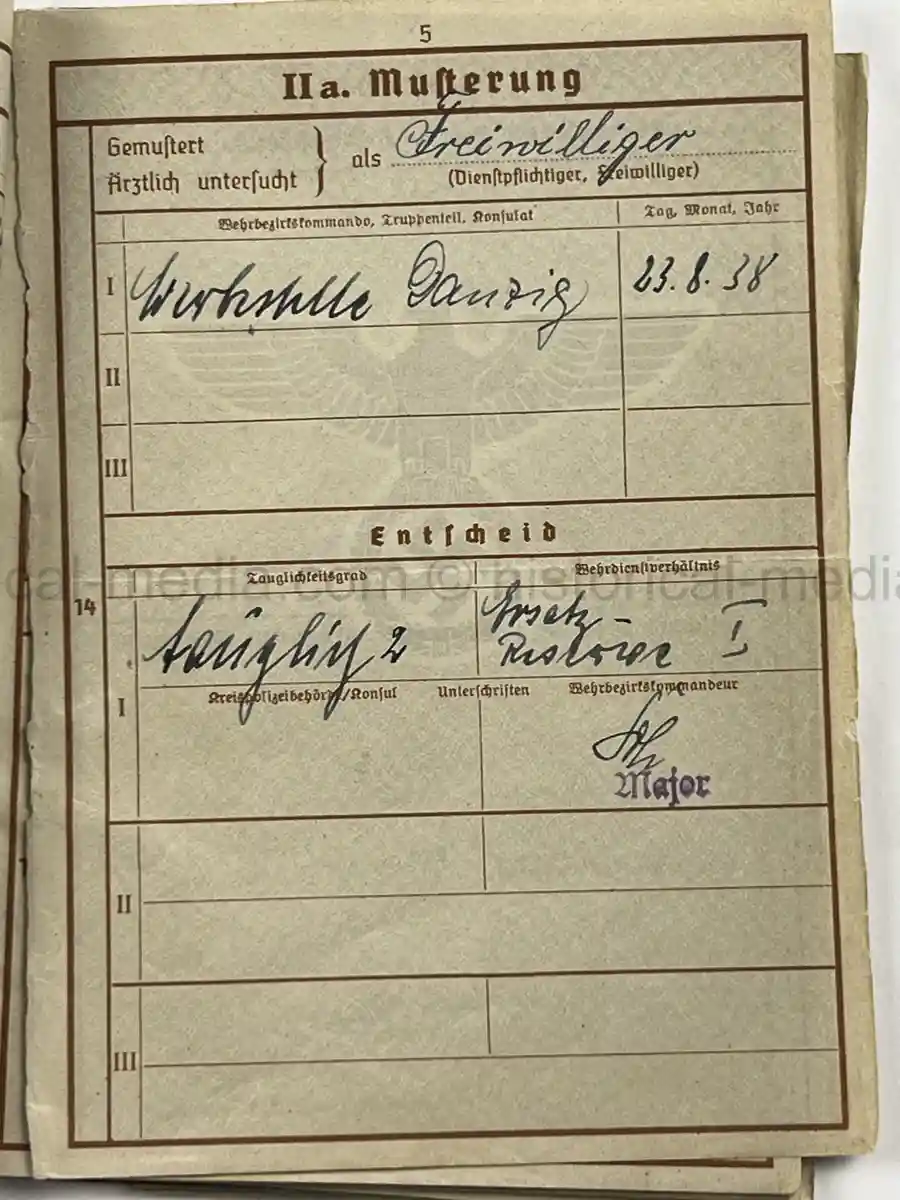 5
II a. Musterung
Gemustert
Ärztlich untersucht
als Freiwilliger
(Dienstpflichtiger, Freiwilliger)
Wehrbezirkskommando, Truppenteil, Konsulat
Tag, Monat, Jahr
I
Danzig
23.8.38
II
III
Entscheid
cal-media.com © historical-media
Tauglichkeitsgrad
Wehrdienstverhältnis
14
tauglich 2
Ersatz-
Reserve I
Kreispolizeibehörde/Konsul Unterschriften Wehrbezirkskommandeur
I
Major
II
III